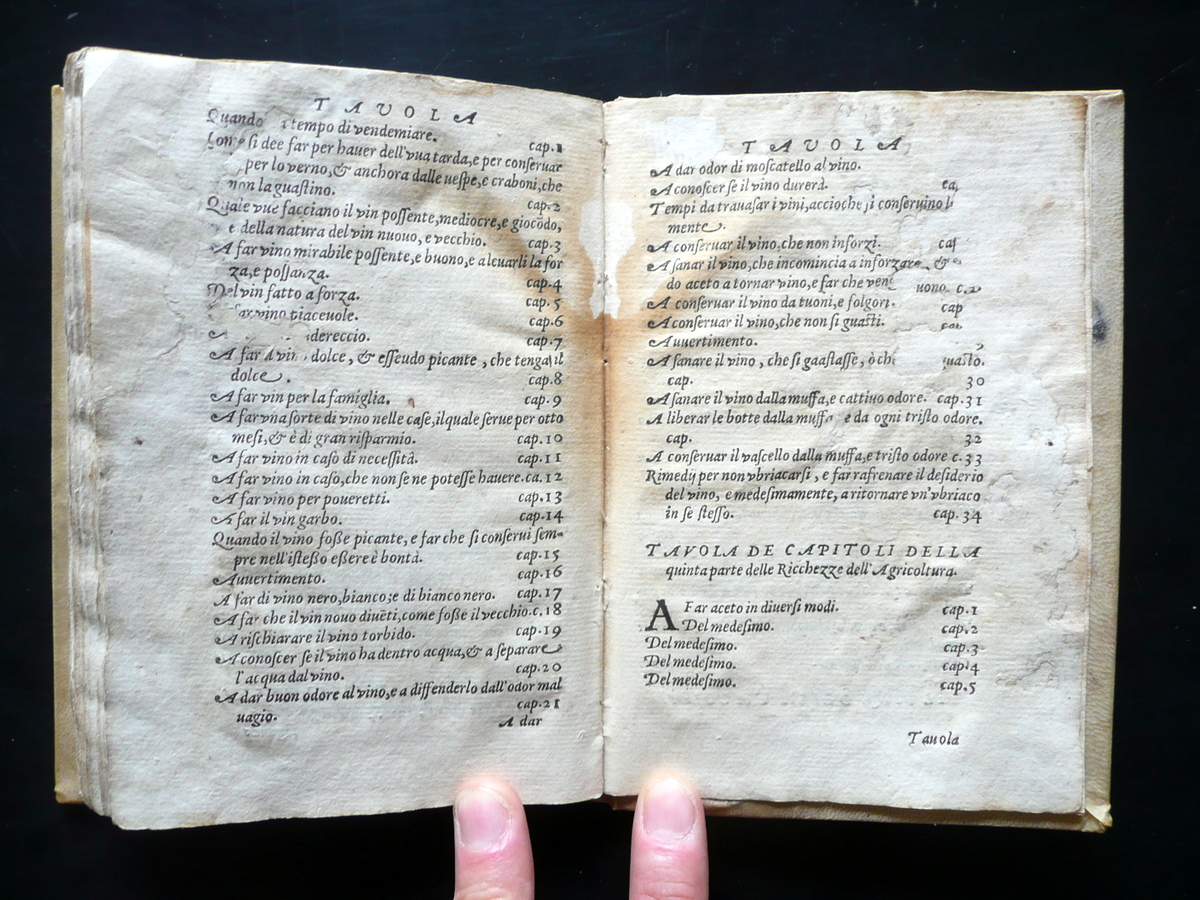 TAVOLA
Quando tempo di vendemiare. cap.1
si dee far per hauer dell'vua tarda, e per conseruar
per lo verno, & anchora dalle uespe, e craboni, che
non la guastino. cap.2
Quale vue facciano il vin possente, mediocre, e giocōdo,
e della natura del vin nuouo, e vecchio. cap.3
A far vino mirabile possente, e buono, e alcuarli la for
za, e possanza. cap.4
Del vin fatto a forza. cap.5
far vino piaceuole. cap.6
dereccio. cap.7
A far vin dolce, & esseudo picante, che tenga il
dolce. cap.8
A far vin per la famiglia. cap.9
A far vna sorte di vino nelle case, ilquale serue per otto
mesi, & è di gran risparmio. cap.10
A far vino in caso di necessità. cap.11
A far vino in caso, che non se ne potesse hauere. ca.12
A far vino per poueretti. cap.13
A far il vin garbo. cap.14
Quando il vino fosse picante, e far che si conserui sem-
pre nell'istesso essere è bontà. cap.15
Auuertimento. cap.16
A far di vino nero, bianco; e di bianco nero. cap.17
A far che il vin nouo diuēti, come fosse il vecchio. c.18
A rischiarare il vino torbido. cap.19
A conoscer se il vino ha dentro acqua, & a separare
l'acqua dal vino. cap.20
A dar buon odore al vino, e a diffenderlo dall'odor mal
uagio. cap.21
A dar
TAVOLA
A dar odor di moscatello al vino.
A conoscer se il vino durerà.
Tempi da trauasar i vini, accioche si conseruino
mente.
A conseruar il vino, che non inforzi.
A sanar il vino, che incomincia a inforzare, &
do aceto a tornar vino, e far che uono.
A conseruar il vino da tuoni, e folgori. cap
A conseruar il vino, che non si guasti.
Auuertimento.
A sanare il vino, che si gaastasse, ò guasto.
cap. 30
A sanare il vino dalla muffa, e cattiuo odore. cap.31
A liberar le botte dalla muffa e da ogni tristo odore.
cap. 32
A conseruar il vascello dalla muffa, e tristo odore c.33
Rimedij per non vbriacarsi, e far rafrenare il desiderio
del vino, e medesimamente, a ritornare vn'vbriaco
in se stesso. cap.34
TAVOLA DE CAPITOLI DELLA
quinta parte delle Ricchezze dell'Agricoltura.
A Far aceto in diuersi modi. cap.1
Del medesimo. cap.2
Del medesimo. cap.3
Del medesimo. cap.4
Del medesimo. cap.5
Tauola